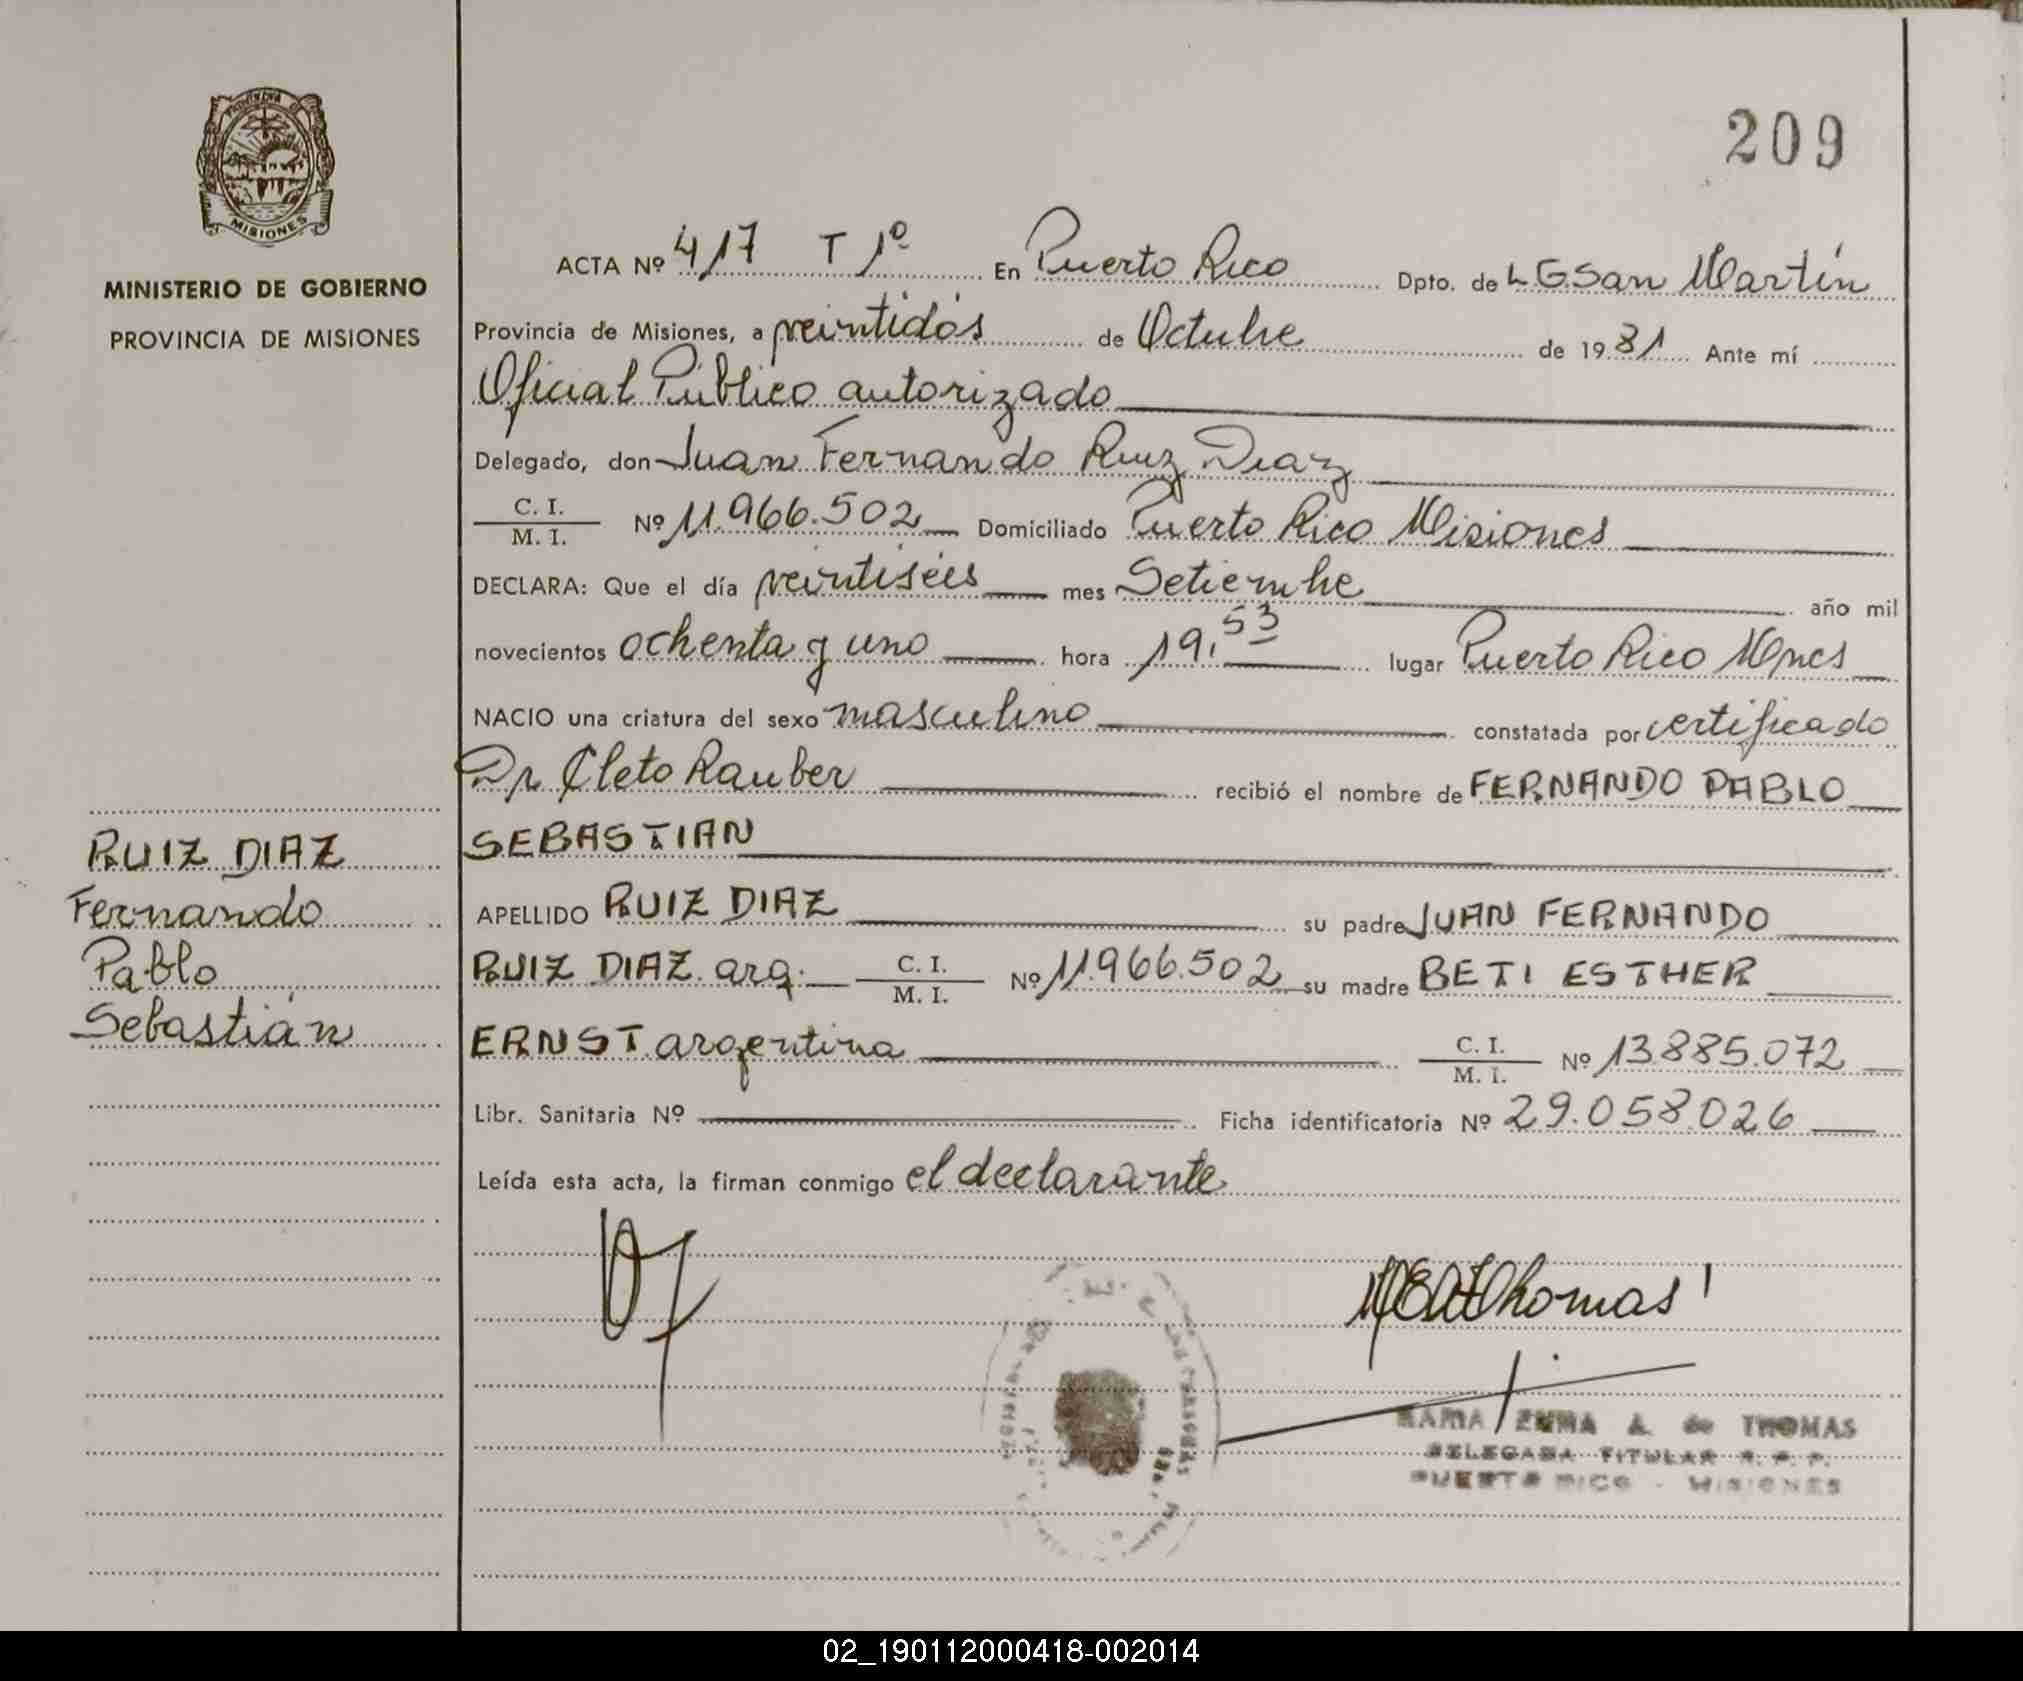 209
PROVINCIA DE
MISIONES
MINISTERIO DE GOBIERNO
PROVINCIA DE MISIONES
ACTA Nº 417 T 1º En Puerto Rico Dpto. de L G San Martín
Provincia de Misiones, a veintidós de Octubre de 1981 Ante mí
Oficial Público autorizado
Delegado, don Juan Fernando Ruiz Diaz
C. I.
M. I. Nº 11.966.502 Domiciliado Puerto Rico Misiones
DECLARA: Que el día veintiséis mes Setiembre año mil
novecientos ochenta y uno hora 19,53 lugar Puerto Rico Mnes
NACIO una criatura del sexo masculino constatada por certificado
Dr Cleto Rauber recibió el nombre de FERNANDO PABLO
SEBASTIAN
APELLIDO RUIZ DIAZ su padre JUAN FERNANDO
RUIZ DIAZ. arg. C. I.
M. I. Nº 11.966.502 su madre BETI ESTHER
ERNST argentina C. I.
M. I. Nº 13.885.072
Libr. Sanitaria Nº Ficha identificatoria Nº 29.058.026
Leída esta acta, la firman conmigo el declarante
RUIZ DIAZ
Fernando
Pablo
Sebastián
Thomas
MARIA EMMA A. de THOMAS
DELEGADA TITULAR R. P. P.
PUERTO RICO - MISIONES
02_190112000418-002014